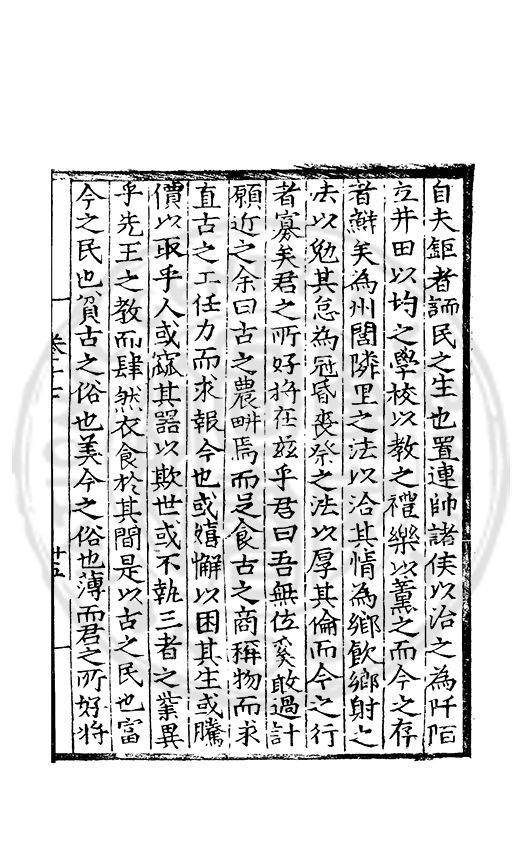 自夫鉅者誦民之生也置連帥諸侯以治之為阡陌
立井田以均之學校以教之禮樂以薰之而今之存
者鮮矣為州閭隣里之法以洽其情為鄉飲鄉射之
法以勉其怠為冠昏喪祭之法以厚其倫而今之行
者寡矣君之所好將在兹乎君曰吾無位奚敢過計
願近之余曰古之農畊焉而足食古之商稱物而求
直古之工任力而求報今也或嬉懈以困其生或騰
價以取乎人或窳其器以欺世或不執三者之業異
乎先王之教而肆然衣食於其間是以古之民也富
今之民也貧古之俗也美今之俗也薄而君之所好將
卷十七
十五